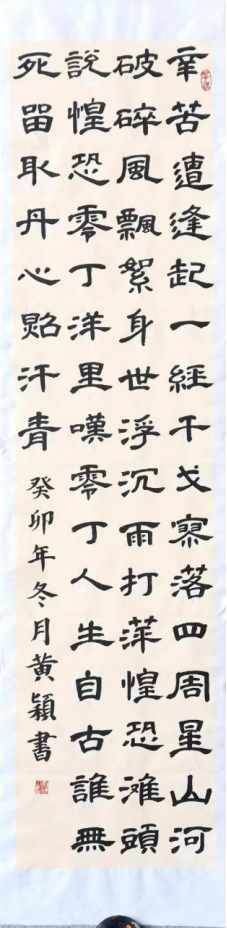 辛苦遭逢起一經干戈寥落四周星山河
破碎風飄絮身世浮沉雨打萍惶恐灘頭
說惶恐零丁洋里嘆零丁人生自古誰無
死留取丹心照汗青 癸卯年冬月黃穎書